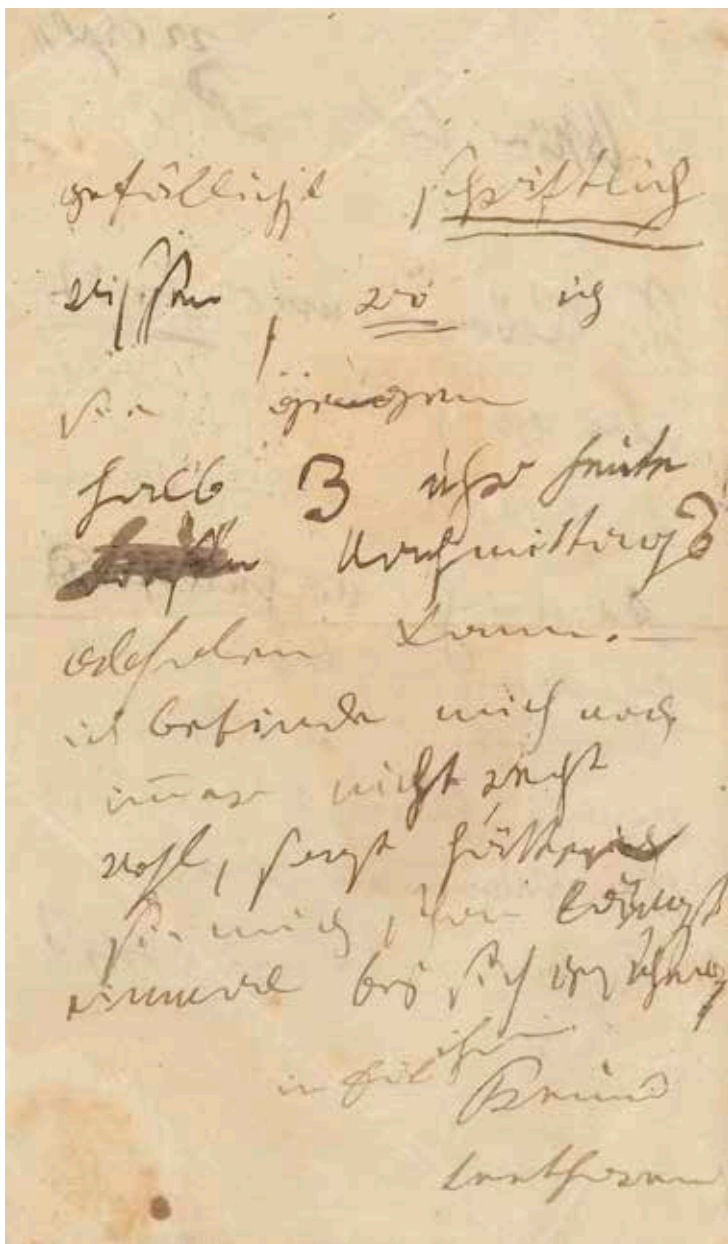 gefälligst schriftlich
wissen, wo ich
sie gegen
halb 3 uhr heute
Nachmittags
abholen kann. —
ich befinde mich noch
immer nicht recht
wohl, sonst hätten
sie mich schon längst
einmal bey sich
in Eil ihr
Freund
Beethoven